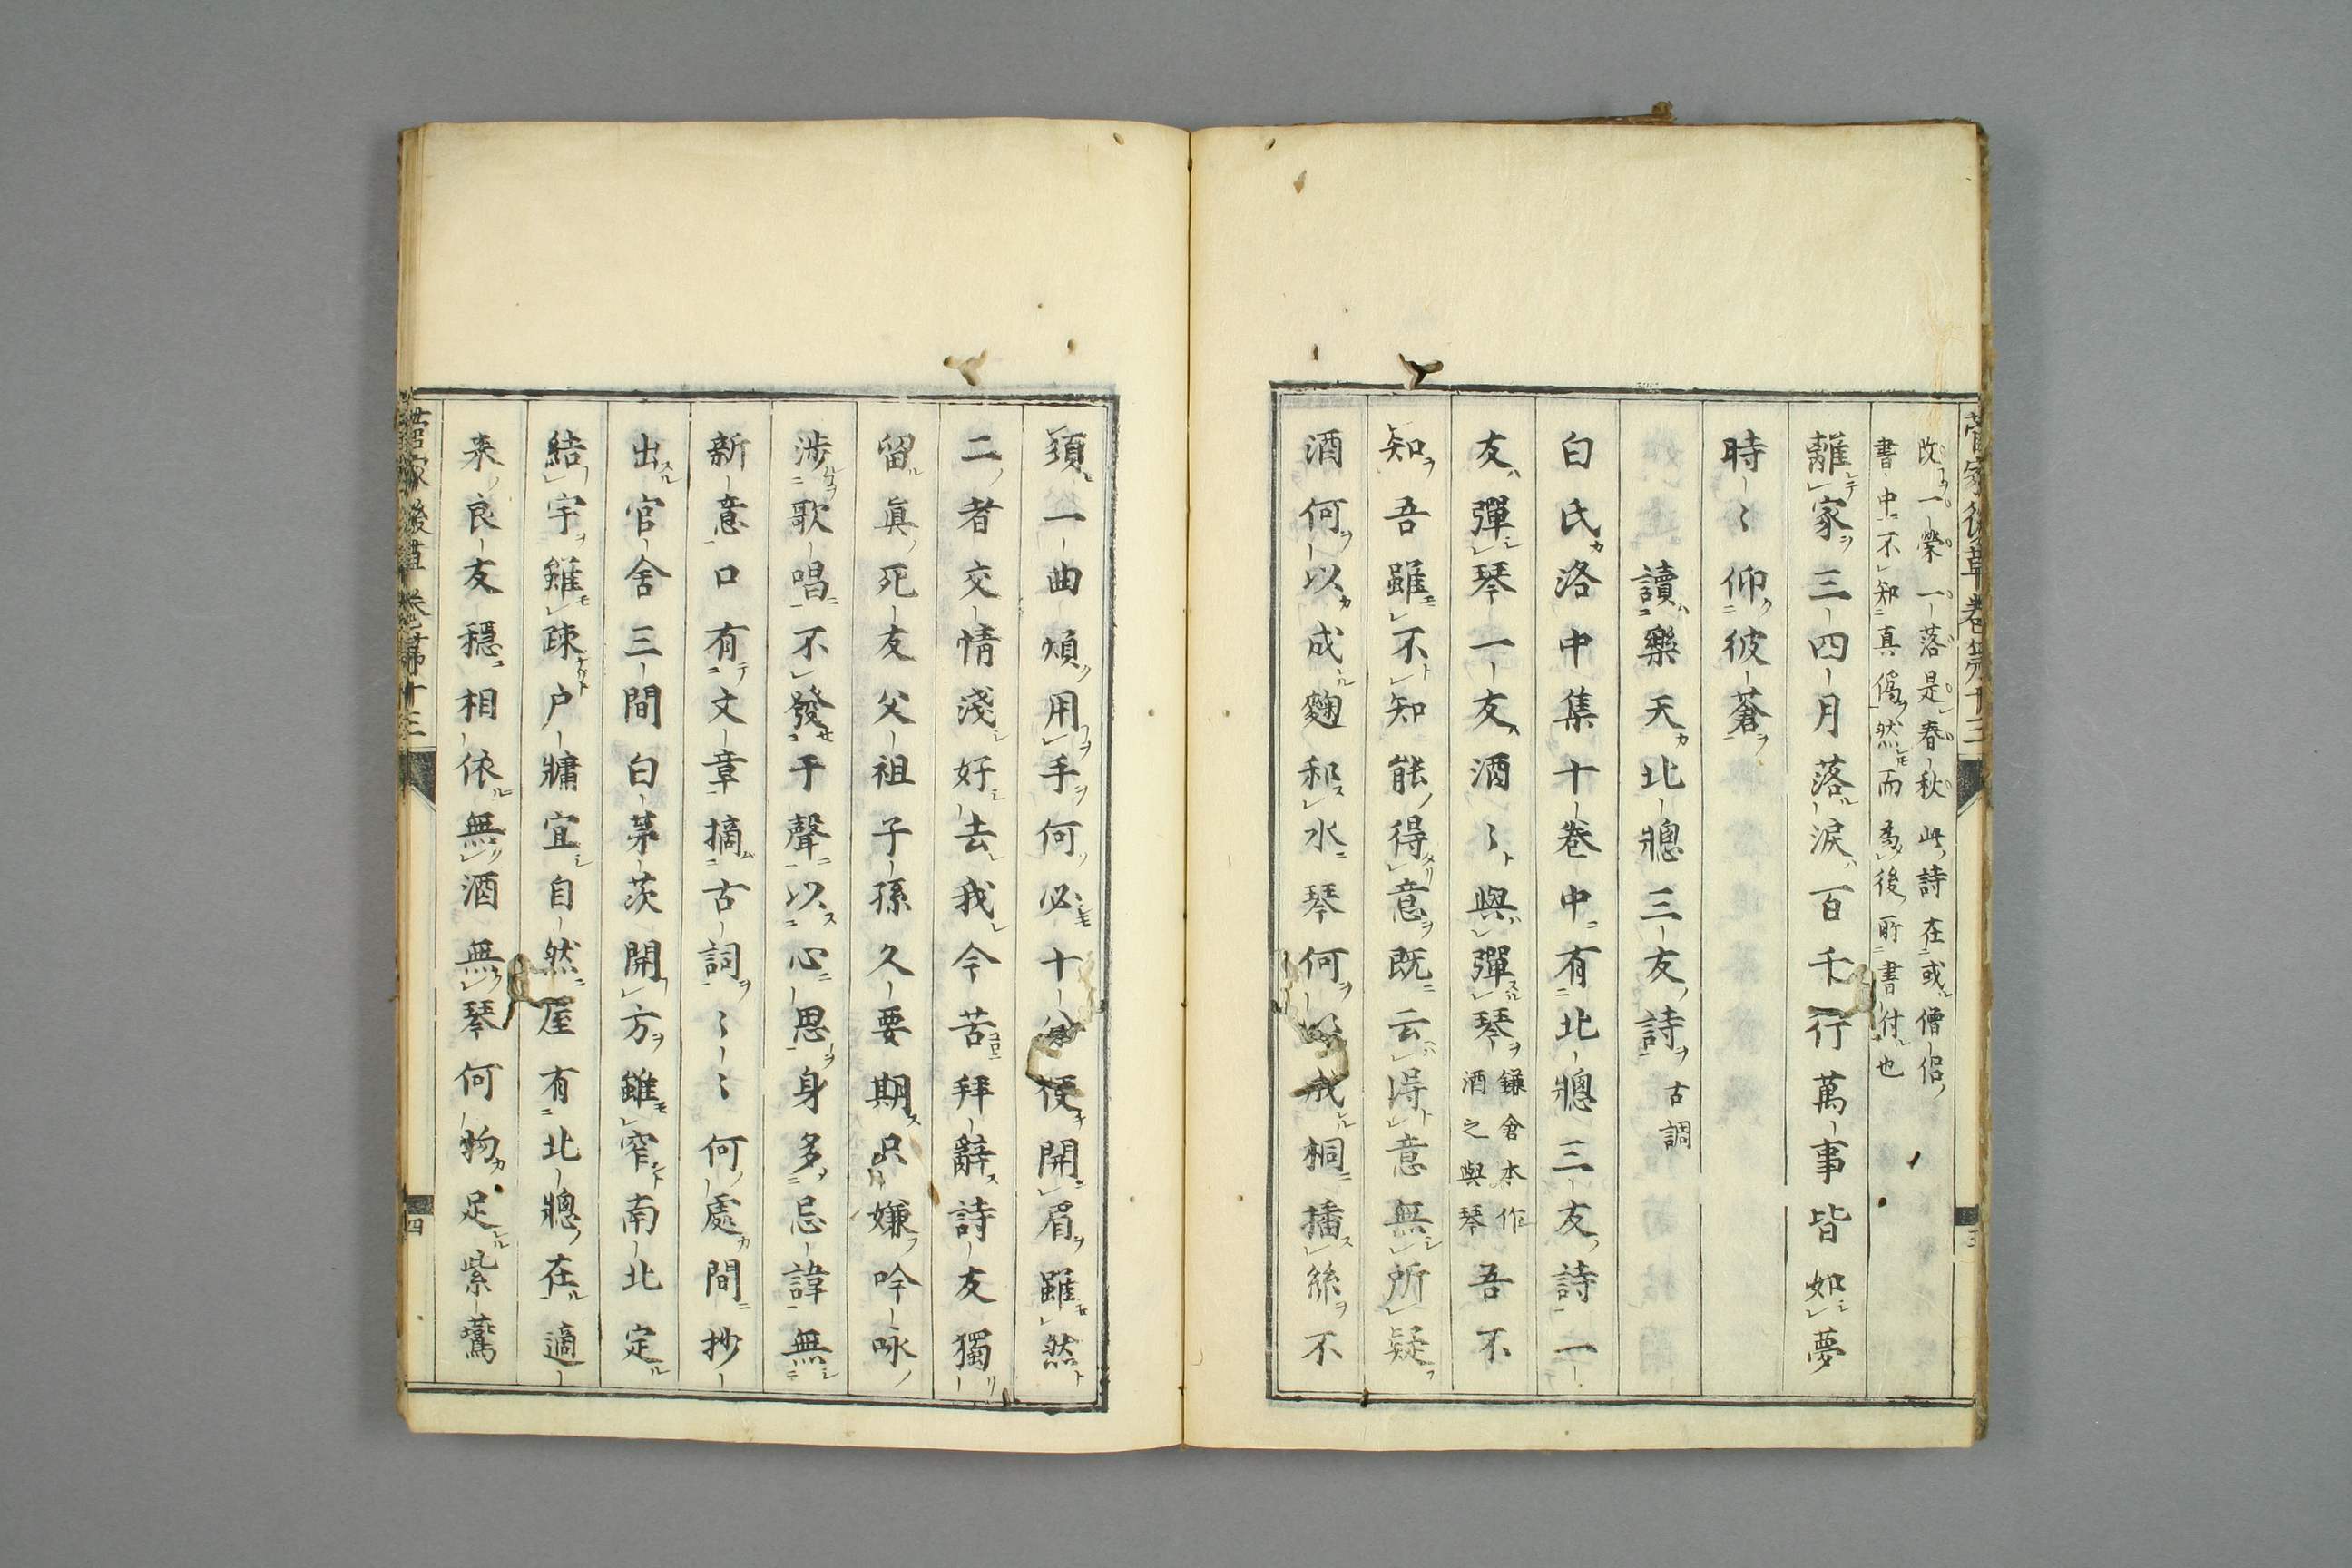 菅家後草 卷第十三
改一榮一落是春秋此詩在或僧侶
書中不知真僞然而爲後所書付也
離家三四月落淚百千行萬事皆如夢
時〻仰彼蒼
讀樂天北牕三友詩 古調
白氏洛中集十卷中有北牕三友詩一
友彈琴一友酒酒〻與彈琴 鎌倉本作酒之與琴 吾不
知吾雖不知能得意既云得意無所疑
酒何以成麴和水琴何 成桐播絲不
須一曲煩用手何必十分便開眉雖然
二者交情淺好去我今苦拜辭詩友獨
留眞死友父祖子孫久要期只嫌吟咏
涉歌唱不發于聲以心思身多忌諱無
新意口有文章摘古詞〻〻何處間抄
出官舍三間白茅茨開方雖窄南北定
結宇雖疎戶牖宜自然屋有北牕在適
來良友穩相依無酒無琴何物足紫鷰
菅家後草 卷第十三
四